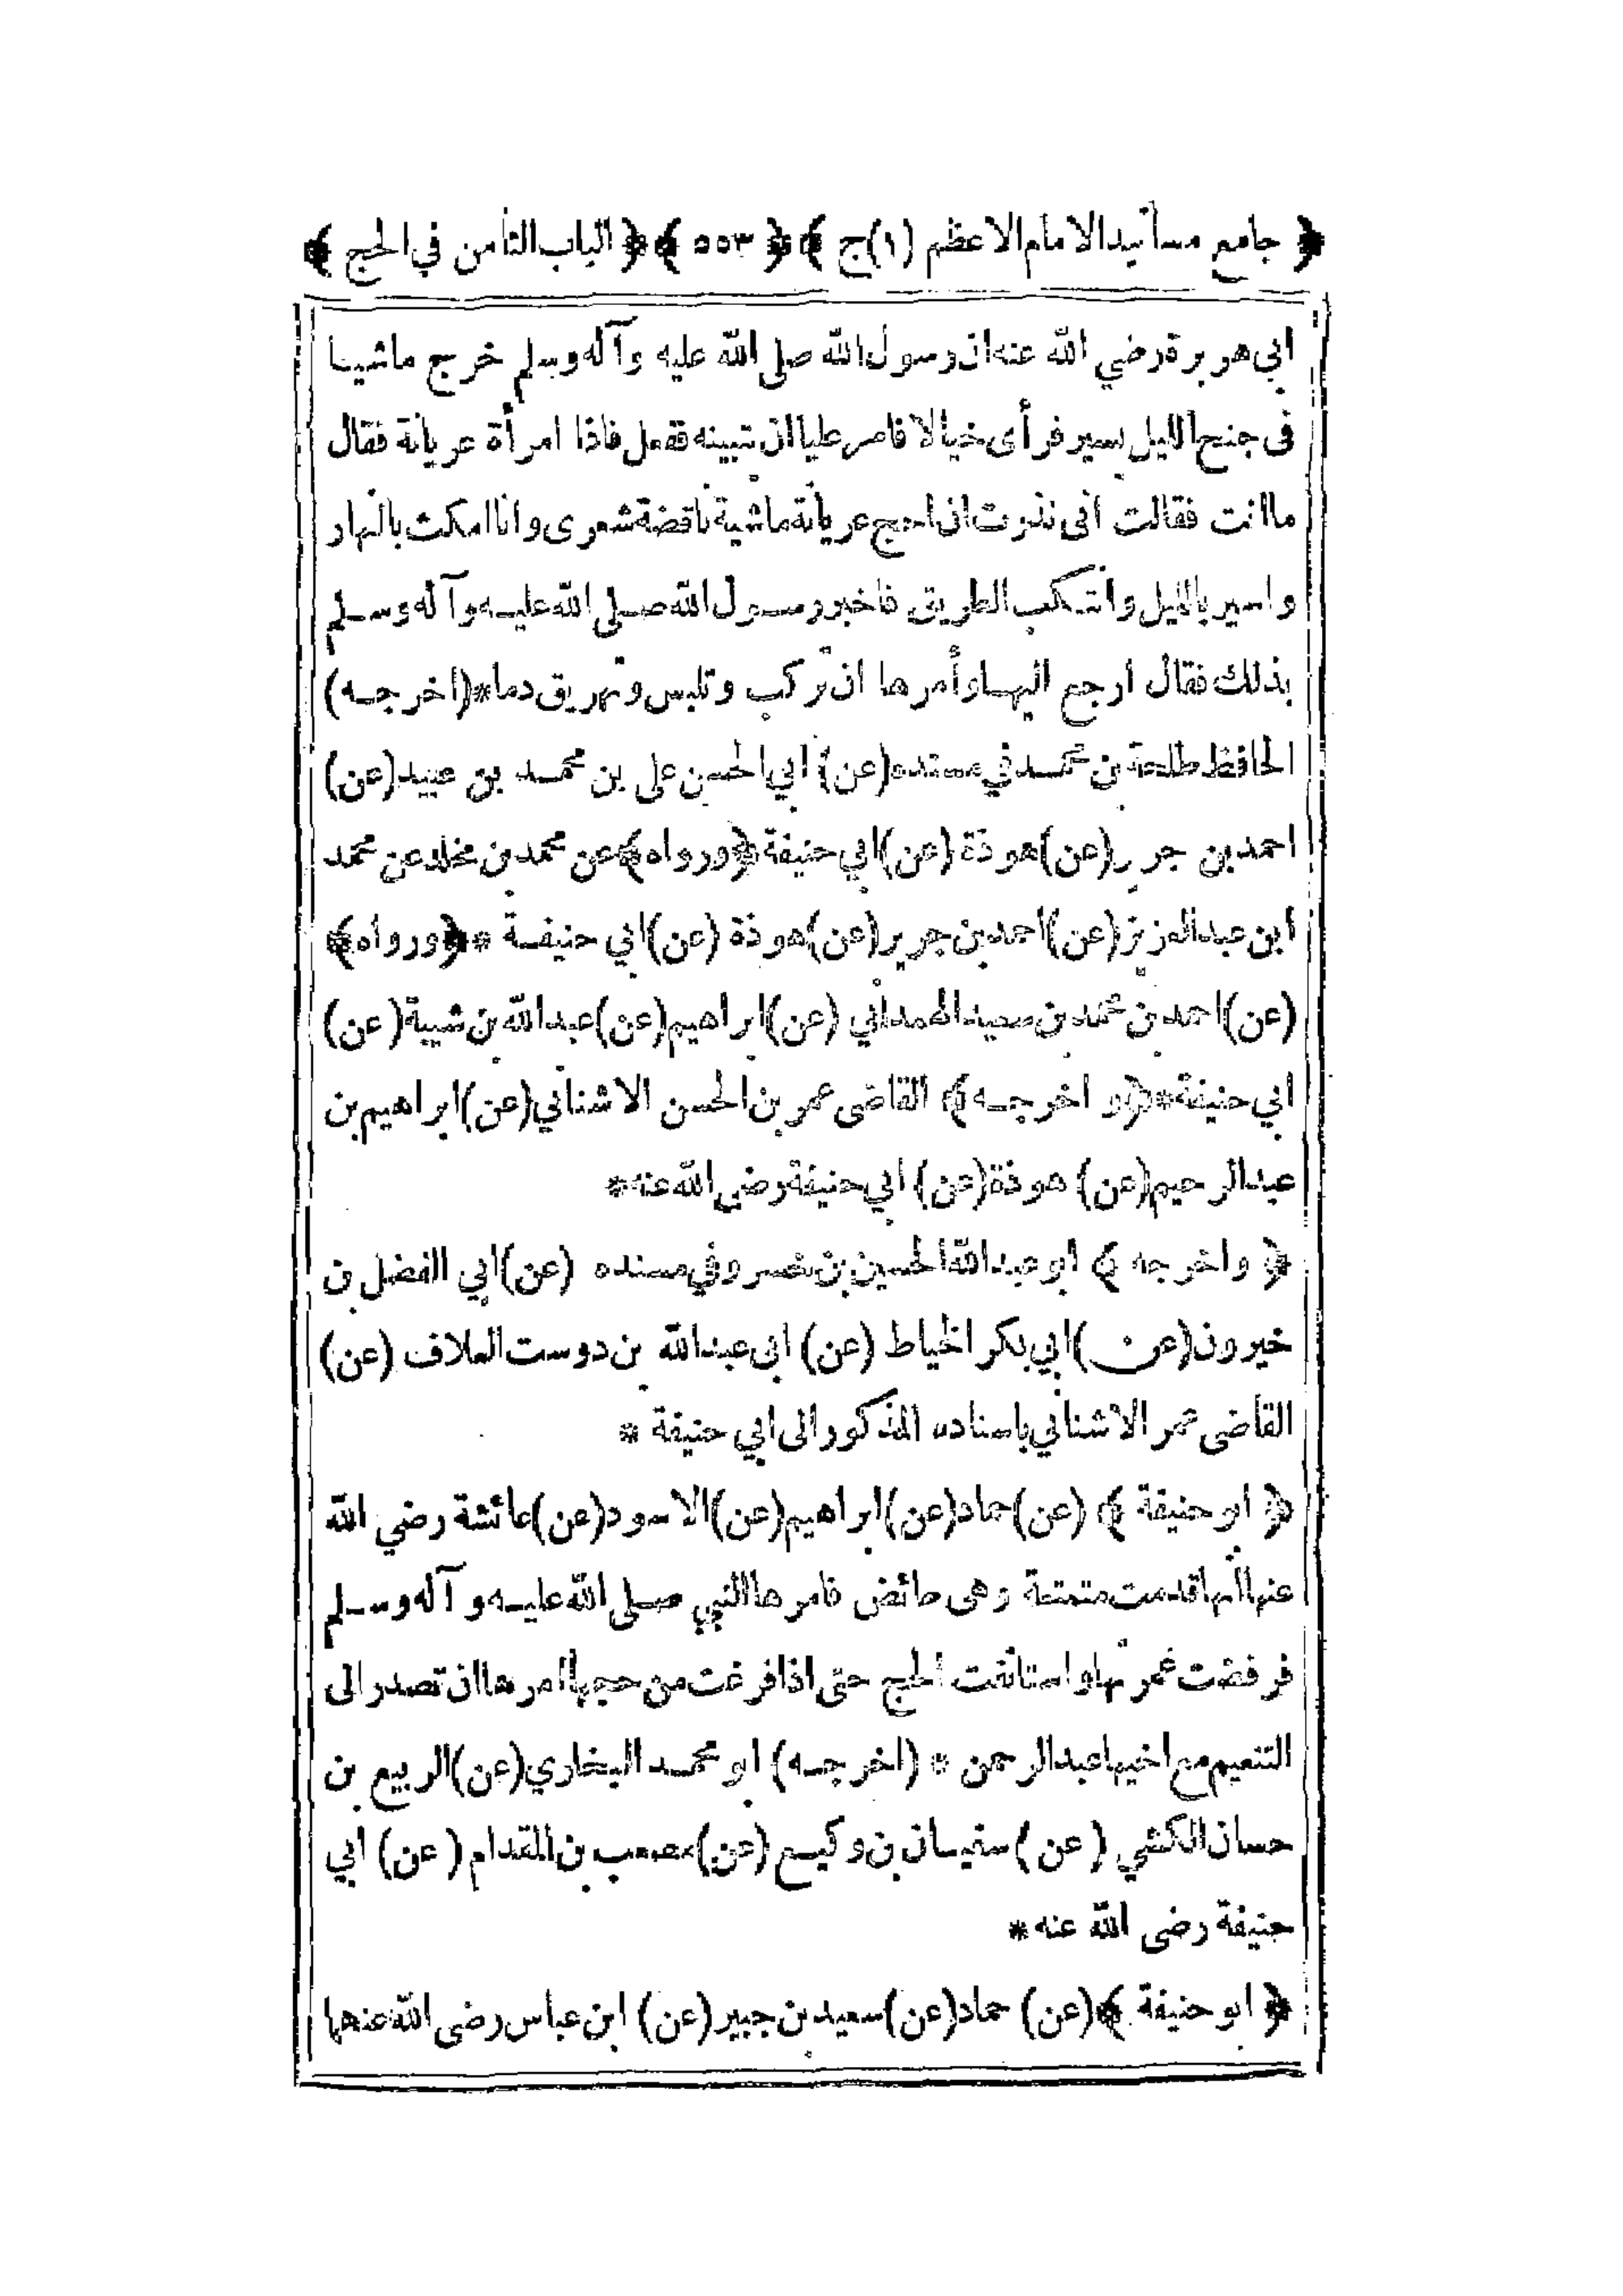 ﴿ جامع مسانيد الامام الاعظم (١)ج ﴾ ﴿ ٥٥٣ ﴾ ﴿ الباب الثامن في الحج ﴾
ابي هريرة رضي الله عنه ان رسول الله صلى الله عليه وآله وسلم خرج ماشيا
فى جنح الليل يسير فرأى خيالا فامر عليا ان تبينه ففعل فاذا امرأة عريانة فقال
ما انت فقالت انى نذرت ان احج عريانة ماشية ناقضة شعرى وانا امكث بالنهار
واسير بالليل وانتكب الطريق فاخبر رسول الله صلى الله عليه وآله وسلم
بذلك فقال ارجع اليها وأمرها ان تركب وتلبس وتهريق دما*(اخرجه)
الحافظ طلحة بن محمد في مسنده (عن) ابي الحسن على بن محمد بن عبيد (عن)
احمد بن جرير (عن) هوذة (عن) ابي حنيفة ﴿ورواه﴾ عن محمد بن مخلد عن محمد
ابن عبد العزيز (عن) احمد بن جرير (عن) هوذة (عن) ابي حنيفة * ﴿ورواه﴾
(عن) احمد بن محمد بن سعيد الهمداني (عن) ابراهيم (عن) عبد الله بن شيبة (عن)
ابي حنيفة* ﴿و اخرجه﴾ القاضى عمر بن الحسن الاشناني (عن) ابراهيم بن
عبد الرحيم (عن) هوذة (عن) ابي حنيفة رضى الله عنه*
﴿ واخرجه ﴾ ابو عبد الله الحسين بن خسرو في مسنده (عن) ابي الفضل بن
خيرون (عن) ابي بكر الخياط (عن) ابى عبد الله بن دوست العلاف (عن)
القاضى عمر الاشناني باسناده المذكور الى ابي حنيفة *
﴿ ابو حنيفة ﴾ (عن) حماد (عن) ابراهيم (عن) الاسود (عن) عائشة رضي الله
عنها انها قدمت متمتعة وهى حائض فامرها النبي صلى الله عليه وآله وسلم
فرفضت عمرتها واستانفت الحج حتى اذا فرغت من حجها امرها ان تصدر الى
التنعيم مع اخيها عبد الرحمن * (اخرجه) ابو محمد البخاري (عن) الربيع بن
حسان الكشي (عن) سفيان بن وكيع (عن) مصعب بن المقدام (عن) أبي
حنيفة رضى الله عنه *
﴿ ابو حنيفة ﴾ (عن) حماد (عن) سعيد بن جبير (عن) ابن عباس رضى الله عنهما